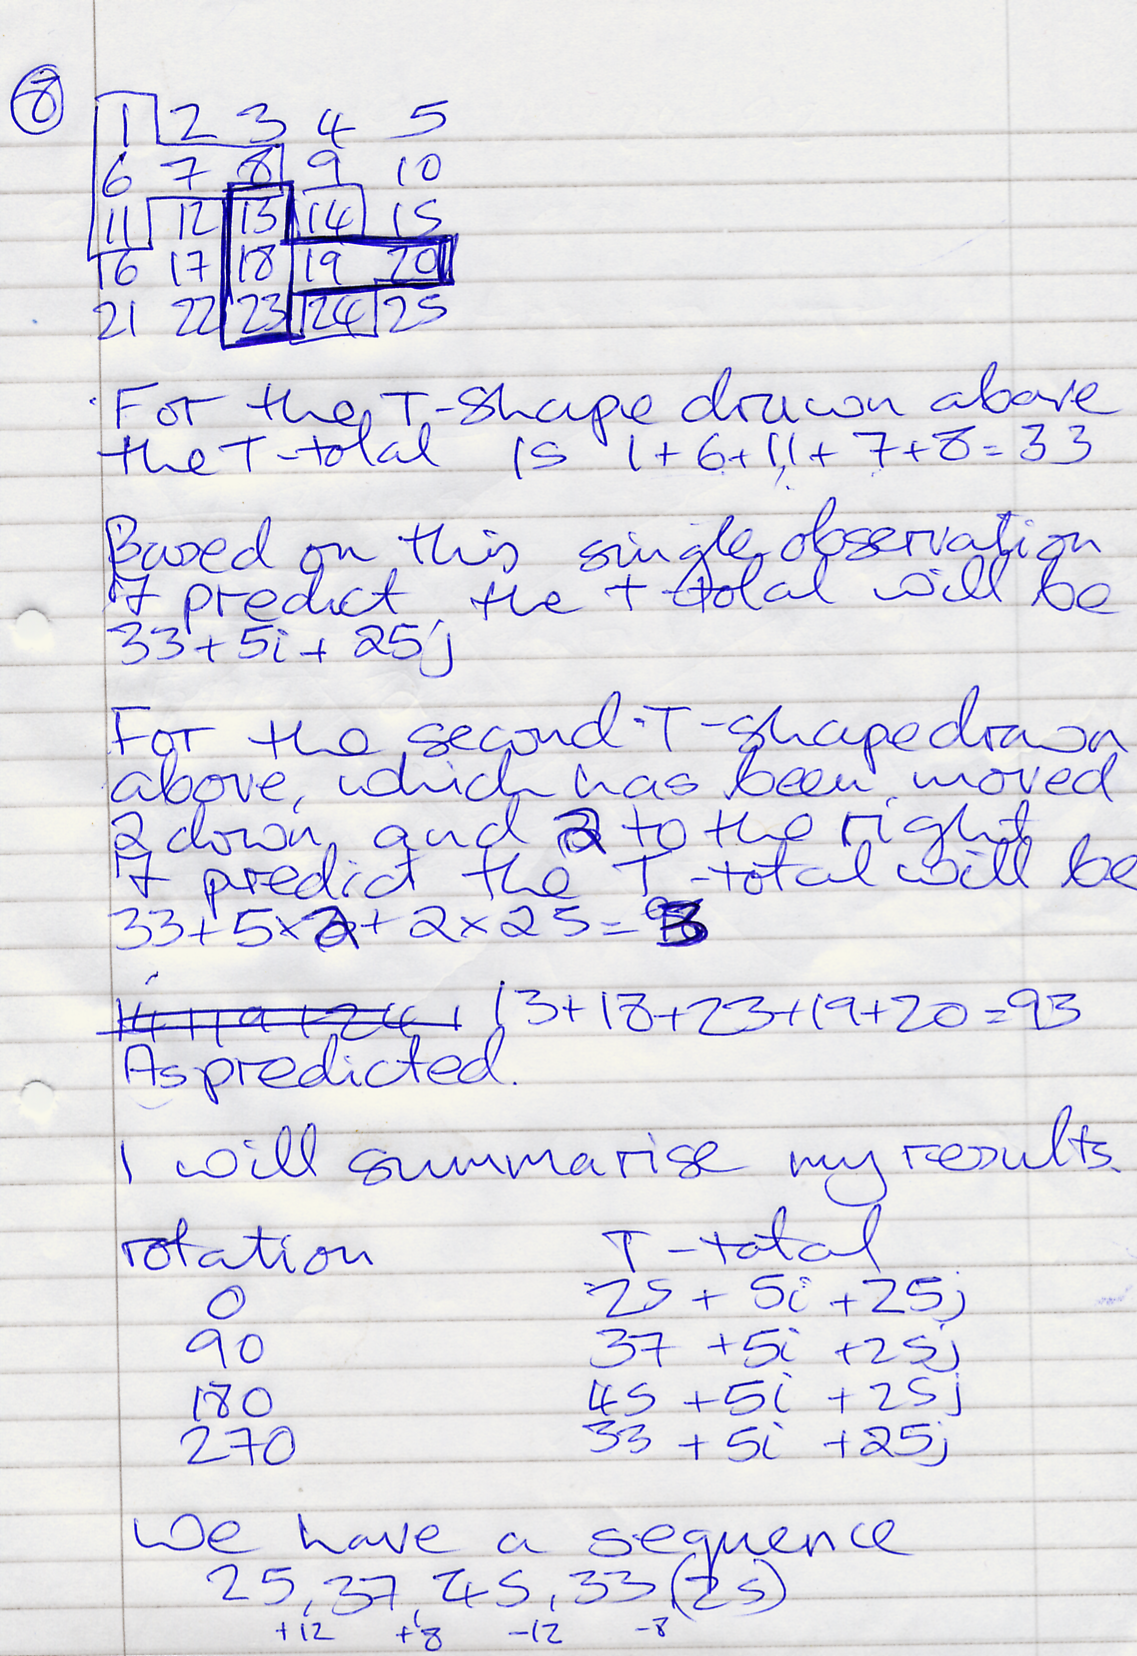 8
1 2 3 4 5
6 7 8 9 10
11 12 13 14 15
16 17 18 19 20
21 22 23 24 25
For the T-shape drawn above
the T-total is 1+6+11+7+8=33
Based on this single observation
I predict the T-total will be
33+5i+25j
For the second T-shape drawn
above, which has been moved
2 down and 2 to the right
I predict the T-total will be
33+5×2+2×25=93
14+19+24+ 13+18+23+19+20=93
As predicted.
I will summarise my results.
rotation T-total
0 25+5i+25j
90 37+5i+25j
180 45+5i+25j
270 33+5i+25j
We have a sequence
25, 37, 45, 33 (25)
+12 +8 -12 -8